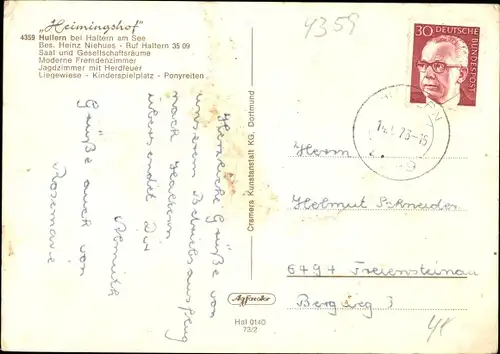 „Heimingshof"
4359 Hullern bei Haltern am See
Bes. Heinz Niehues - Ruf Haltern 35 09
Saat und Gesellschaftsräume
Moderne Fremdenzimmer
Jagdzimmer mit Herdfeuer
Liegewiese - Kinderspielplatz - Ponyreiten
4359
30 DEUTSCHE
BUNDESPOST
Herzliche Grüße von
unserem Betriebsausflug
nach Haltern
übersendet Dir
Almuth
Grüße auch von
Rosemarie
Cramers Kunstanstalt KG, Dortmund
Herrn
Helmut Schneider
6494 Freiensteinau
Bergweg 3
Hal 0140
73/2